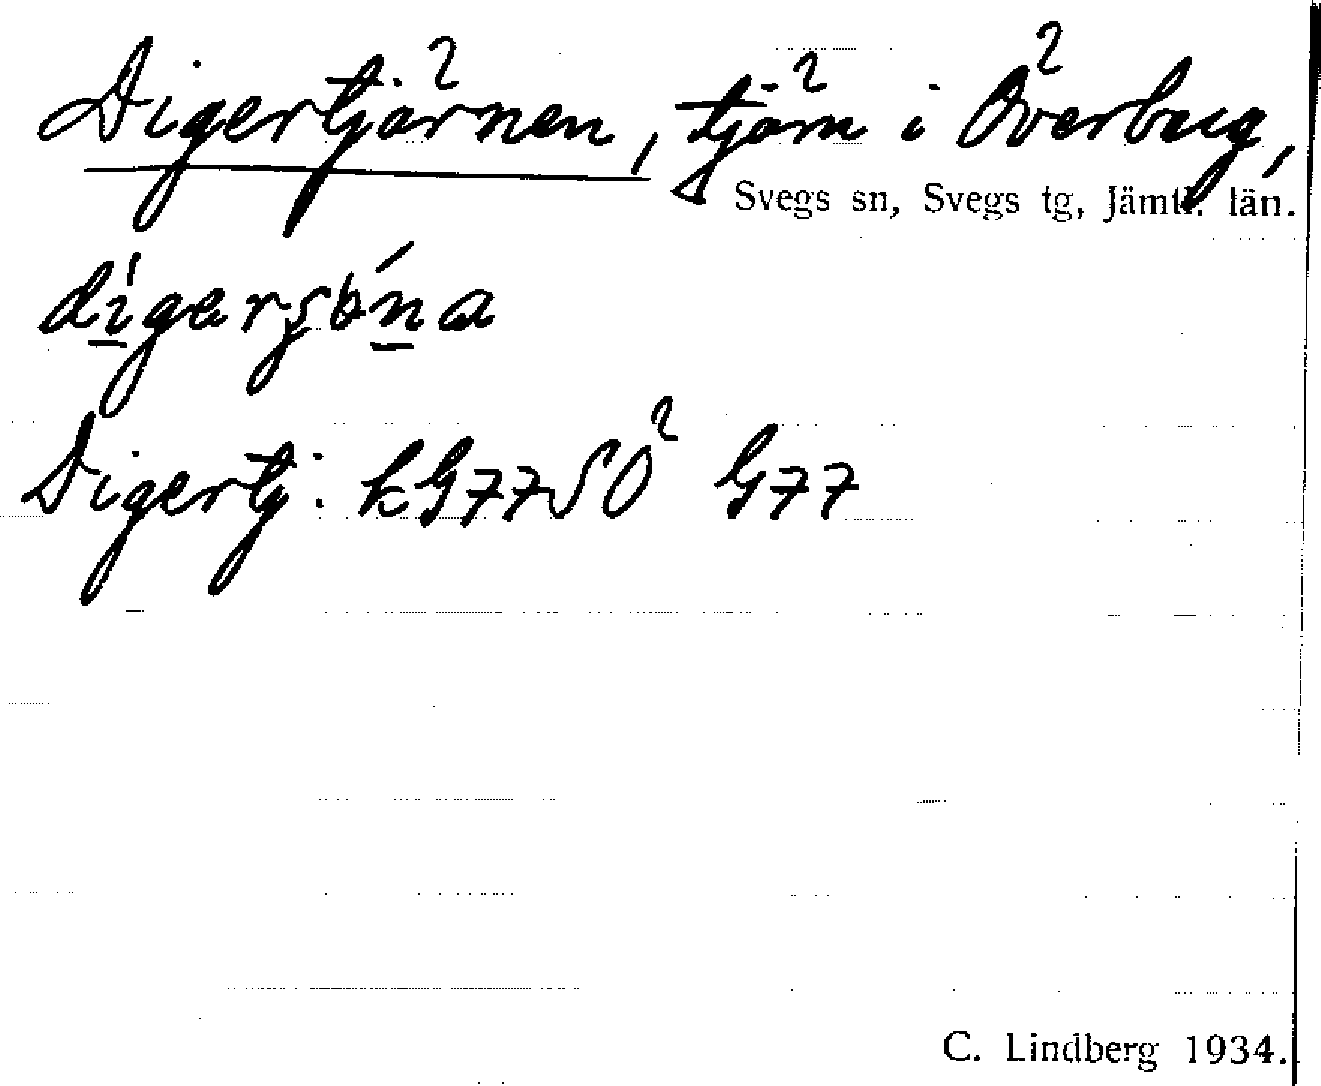 Digertjärnen, tjärn i Överberg,
Svegs sn, Svegs tg, Jämtl. län.
Digertj: kG77SÖ G77
C. Lindberg 1934.